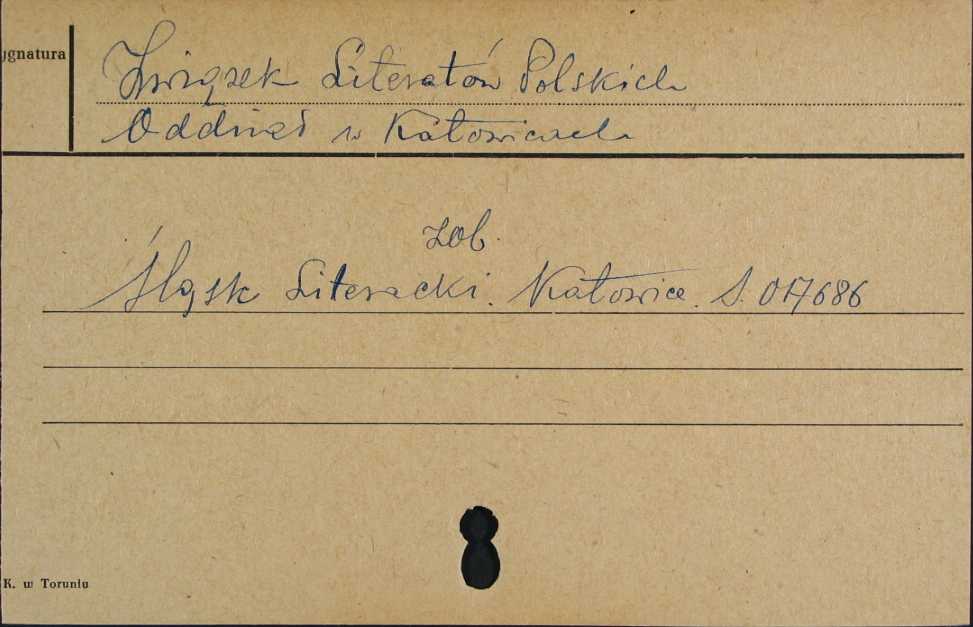 ygnatura
Związek Literatów Polskich
Oddział w Katowicach
zob.
Śląsk Literacki. Katowice. S. 017686
K. w Toruniu